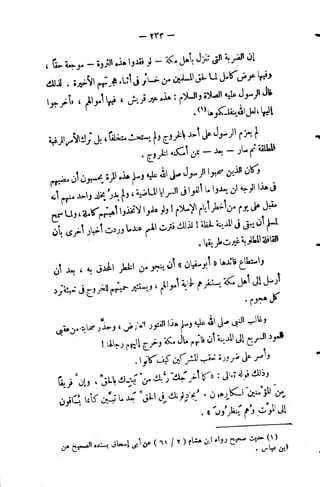 — ٢٣٣ —
إن الضربة التى تنزل بأهل مكة — لو فقدوا هذه الثروة — موجعة حقًا ،
وفيها عوض كامل لما لحق المسلمين من خسائر فى أثناء هجرتهم الأخيرة . لذلك
قال الرسول عليه الصلاة والسلام : هذه عير قريش ، فيها أموالهم ، فاخرجوا
إليها ، لعل الله ينفلكموها(١) .
لم يعزم الرسول على أحد بالخروج ولم يستحث متخلفًا ، بل ترك الأمر للرغبة
المطلقة ثم سار — بعد — بمن أمكنه الخروج .
وكان الذين صحبوا الرسول صلى الله عليه وسلم هذه المرة يحسبون أن مضيهم
فى هذا الوجه لن يعدوا ما ألفوا فى السرايا الماضية ، ولم يدر بخلد واحد منهم أنه
مقبل على يوم من أخطر أيام الإسلام ! ولو علموا لاتخذوا أهبتهم كاملة ، ولما سمح
لمسلم أن يبقى فى المدينة لحظة ! لذلك فترت الهمم عندما وردت أخبار أخرى بأن
القافلة المطلوبة غيرت طريقها .
واستطاع قائدها « أبو سفيان » أن ينجو من الخطر المحدق به ، بعد أن
أرسل إلى أهل مكة يستنفرهم لحماية أموالهم ، ويستثير حميتهم للخروج فى تعبئة ترد
كل هجوم .
وغالب النبى صلى الله عليه وسلم هذا الفتور العارض ، وحذر صحابته من عقبى
العود السريع إلى المدينة أن فاتهم مال مكة وخرج إليهم رجالها !
وأصر على ضرورة تعقب المشركين كيف كانوا .
وذلك قوله تعالى : « كما أخرجك ربك من بيتك بالحق ، وإن فريقًا
من المؤمنين لكارهون . يجادلونك فى الحق بعد ما تبين كأنما يساقون
إلى الموت وهم ينظرون » .
(١) حديث صحيح رواه ابن هشام ( ٢ / ٦١ ) عن أبى إسحاق بسنده الصحيح عن
ابن عباس .